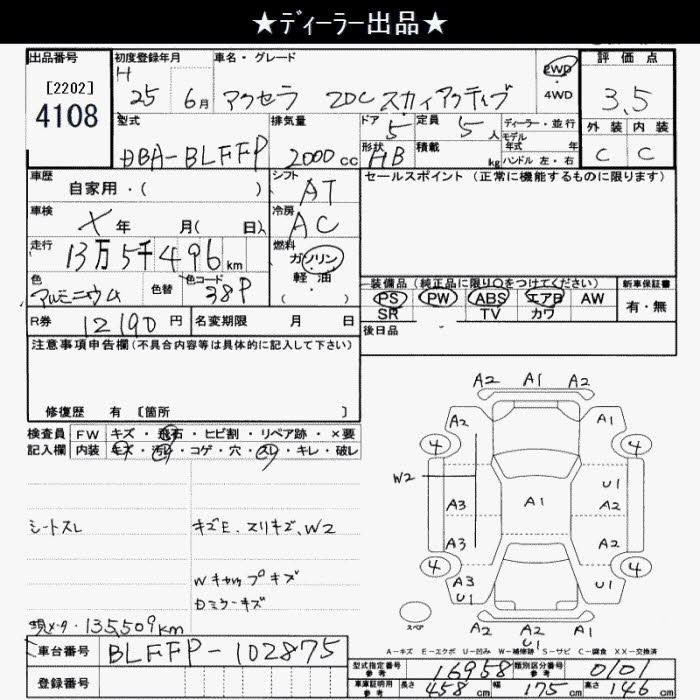 ★ディーラー出品★
出品番号 初度登録年月 車名・グレード 2WD 評価点
[2202] H 25 6月 アクセラ 20C スカイアクティブ 4WD 3.5
4108
型式 排気量 ドア 5 定員 5人 ディーラー・並行 外装 内装
モデル年式 年
DBA-BLFFP 2000cc 形状 HB 積載 kg ハンドル 左・右 C C
車歴 自家用・( ) シフト AT セールスポイント (正常に機能するものに限ります)
車検 年 月( 日) 冷房 AC
走行 13万5千496km 燃料 ガソリン
軽・油
( )
色 アルミニウム 色替 色コード 38P 装備品(純正品に限り○をつけてください) 新車保証書
PS PW ABS エアB AW 有・無
SR TV カワ
R券 12190円 名変期限 月 日 後日品
注意事項申告欄(不具合内容等は具体的に記入して下さい)
修復歴 有 [箇所 ]
検査員 FW キズ・飛石・ヒビ割・リペア跡・×要
記入欄 内装 キズ・汚れ・コゲ・穴・スレ・キレ・破レ
シートスレ キズE、スリキズ、W2
Wキャップキズ
Dミラーキズ
現メータ・135,509km
車台番号 BLFFP-102875
登録番号
A2 A1 A2
A2 A1
4 4
W2 U1
A3 A1 A2
A3 A2
4 4
A3 U1 U1
A2 A2 A2
U1
スペア
A-キズ E-エクボ U-凹み W-補修跡 S-サビ C-腐食 XX-交換済
型式指定番号 参考 16958 類別区分番号 参考 0101
車庫証明用 参考 長さ 458cm 幅 175cm 高さ 146cm